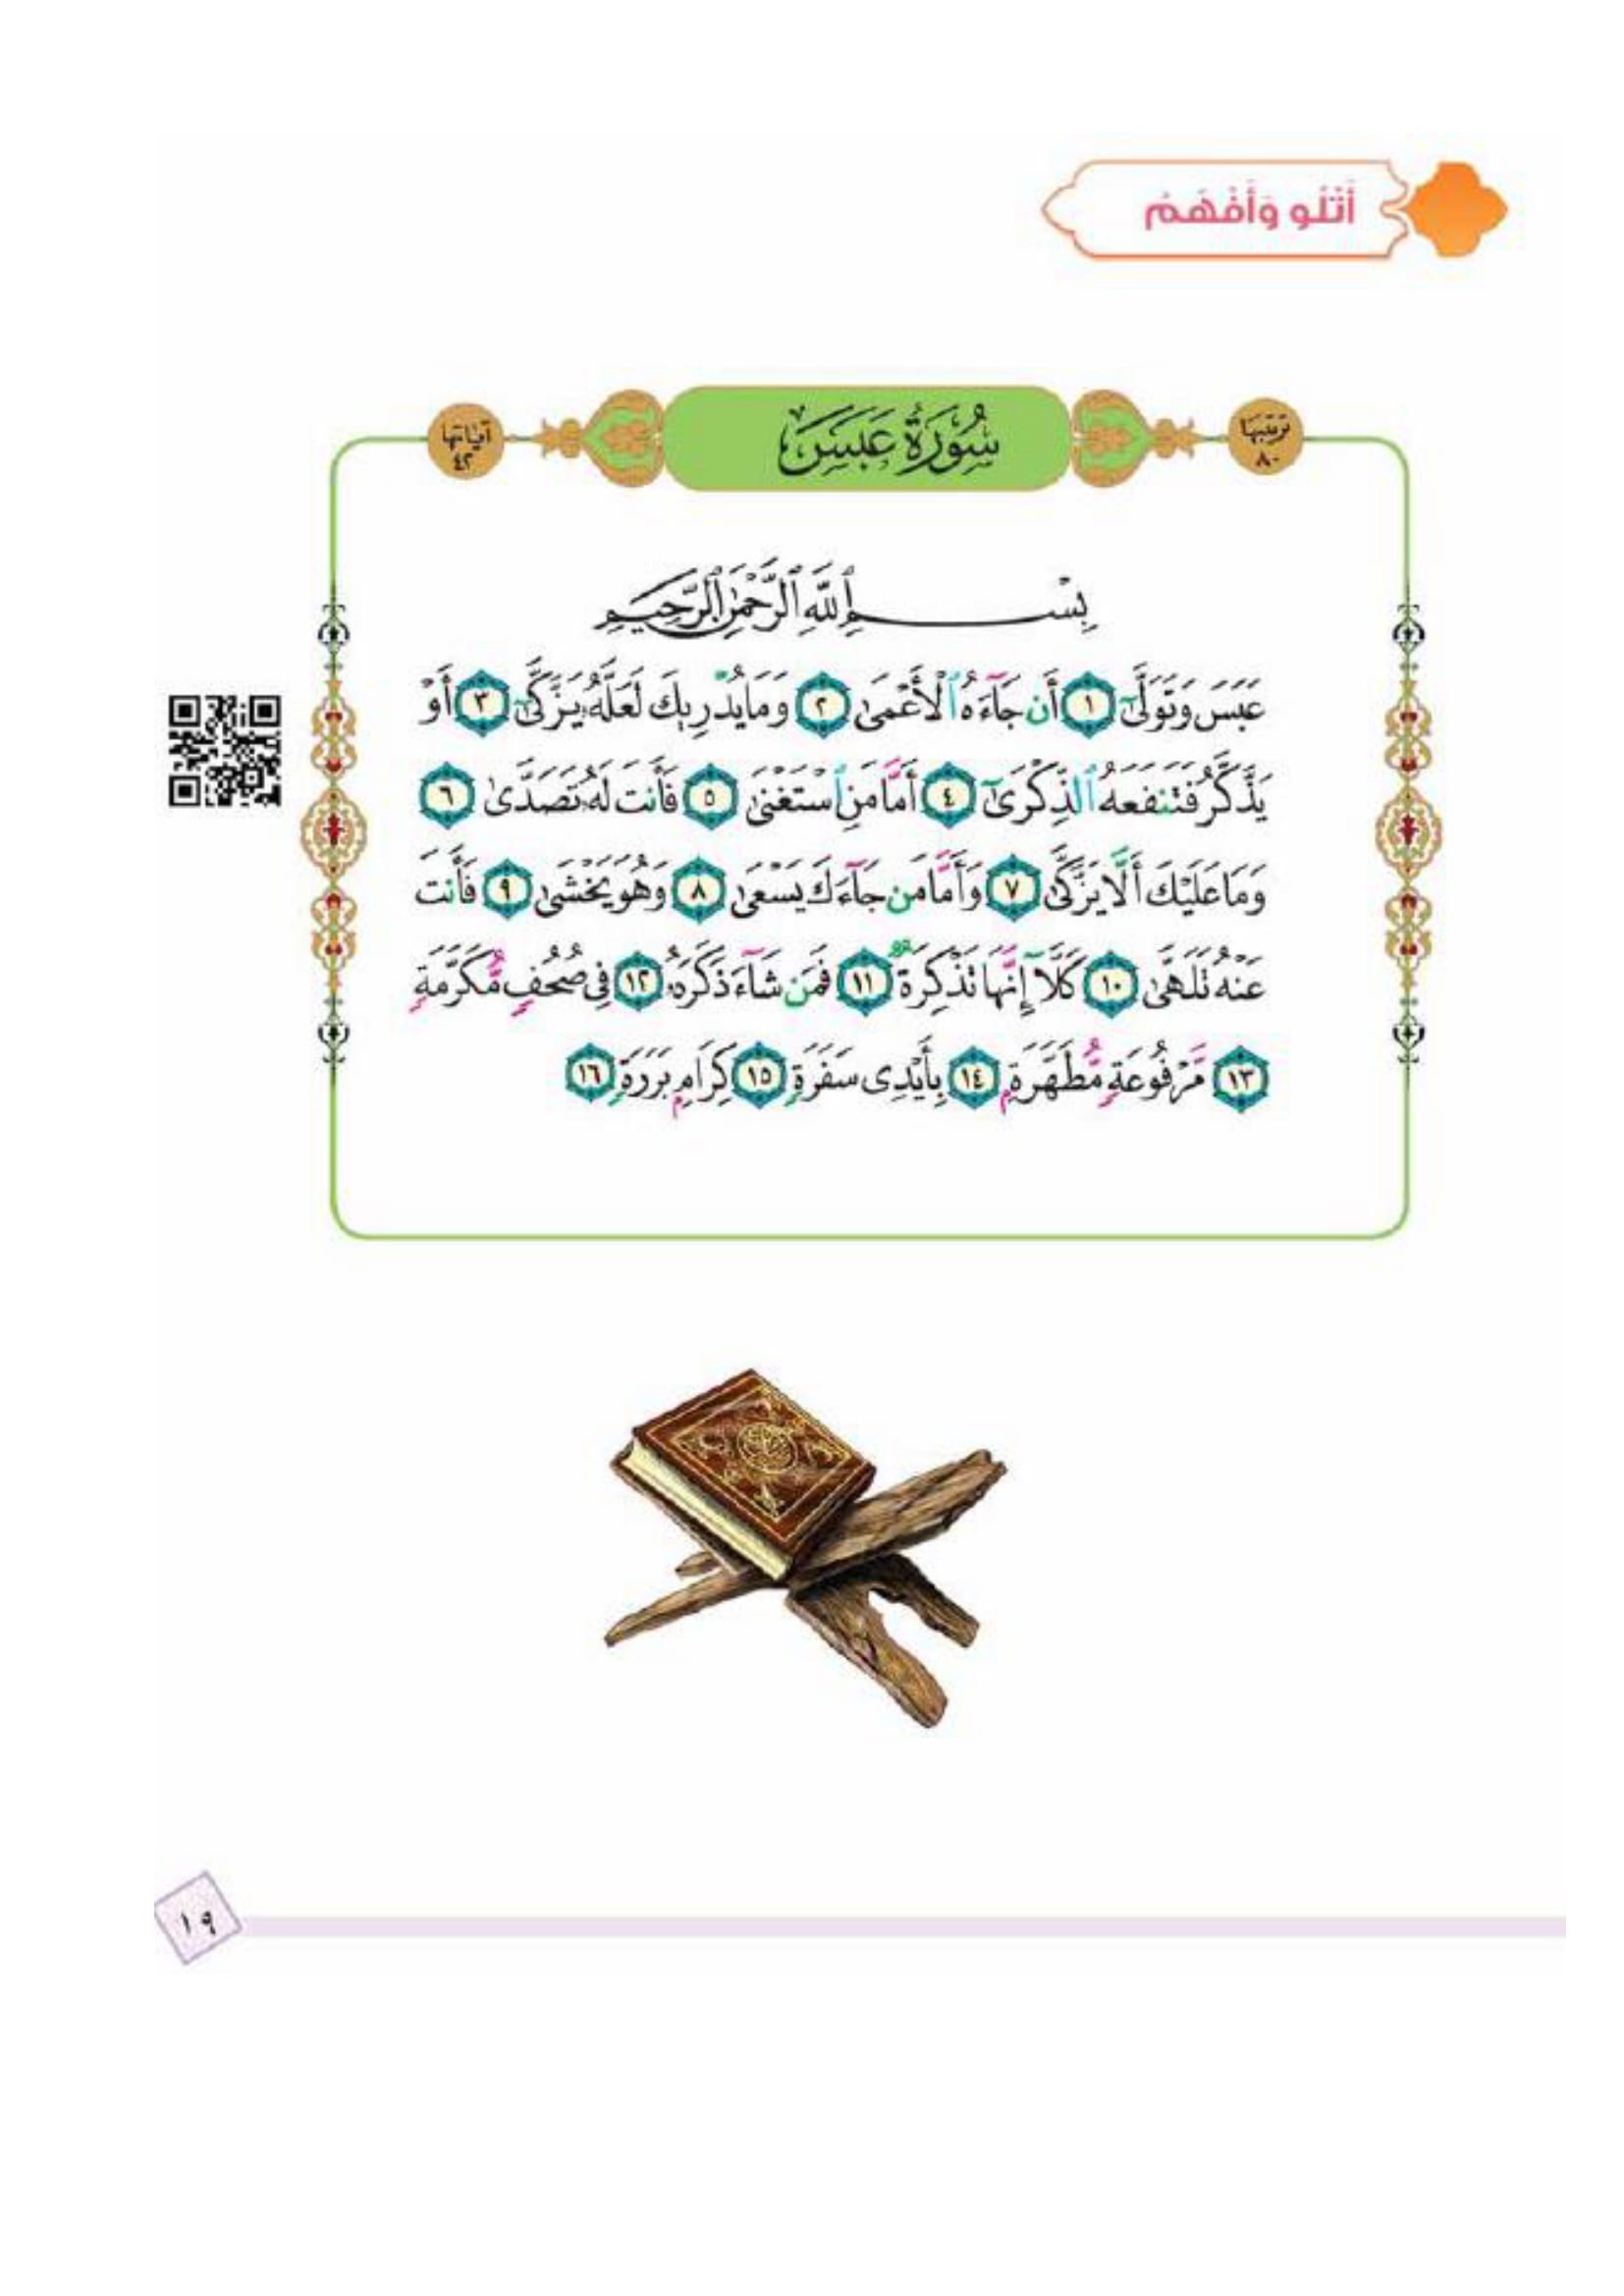 أَتْلُو وَأَفْهَمُ
ترتيبها ٨٠
سُورَةُ عَبَسَ
آياتها ٤٢
بِسْمِ ٱللَّهِ ٱلرَّحْمَٰنِ ٱلرَّحِيمِ
عَبَسَ وَتَوَلَّىٰٓ ١ أَن جَآءَهُ ٱلْأَعْمَىٰ ٢ وَمَا يُدْرِيكَ لَعَلَّهُۥ يَزَّكَّىٰٓ ٣ أَوْ
يَذَّكَّرُ فَتَنفَعَهُ ٱلذِّكْرَىٰٓ ٤ أَمَّا مَنِ ٱسْتَغْنَىٰ ٥ فَأَنتَ لَهُۥ تَصَدَّىٰ ٦
وَمَا عَلَيْكَ أَلَّا يَزَّكَّىٰ ٧ وَأَمَّا مَن جَآءَكَ يَسْعَىٰ ٨ وَهُوَ يَخْشَىٰ ٩ فَأَنتَ
عَنْهُ تَلَهَّىٰ ١٠ كَلَّآ إِنَّهَا تَذْكِرَةٌ ١١ فَمَن شَآءَ ذَكَرَهُۥ ١٢ فِى صُحُفٍ مُّكَرَّمَةٍ
١٣ مَّرْفُوعَةٍ مُّطَهَّرَةٍۭ ١٤ بِأَيْدِى سَفَرَةٍ ١٥ كِرَامٍۭ بَرَرَةٍ ١٦
١٩